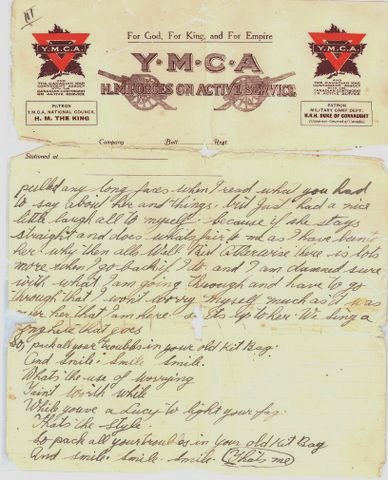 For God, For King, and For Empire
Y.M.C.A
Y·M·C·A
Y.M.C.A
H.M. FORCES ON ACTIVE SERVICE
PATRON
Y.M.C.A. NATIONAL COUNCIL
H. M. THE KING
PATRON
MILITARY CAMP DEPT.
H.R.H. DUKE OF CONNAUGHT
Company Batt. Regt.
Stationed at
pulled any long faces when I read what you had
to say about her and things. but just had a nice
little laugh all to myself: because if she stays
straight and does whats fair to me as I have been to
her why then alls Well But Otherwise there is lots
more when I go back if I do and I am damned sure
with what I am going through and have to go
through that I won't worry myself much as it was
over her that I am here. so Its Up to her. We sing a
song here that goes
So pack all your troubles in your old Kit Bag.
And Smile. Smile Smile.
Whats the use of worrying
Taint worth while
While youve a Lucy to light your fag.
Thats the Style.
So pack all your troubles in Your old Kit Bag
And Smile. Smile. Smile. (Thats me)